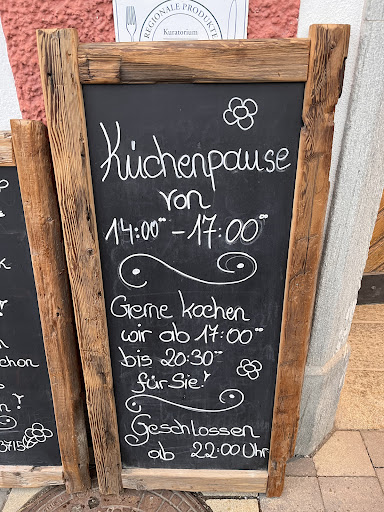 REGIONALE PRODUKTE
Kuratorium
Küchenpause
von
14:00 - 17:00
Gerne kochen
wir ab 17:00
bis 20:30
für Sie!
Geschlossen
ab 22:00 Uhr